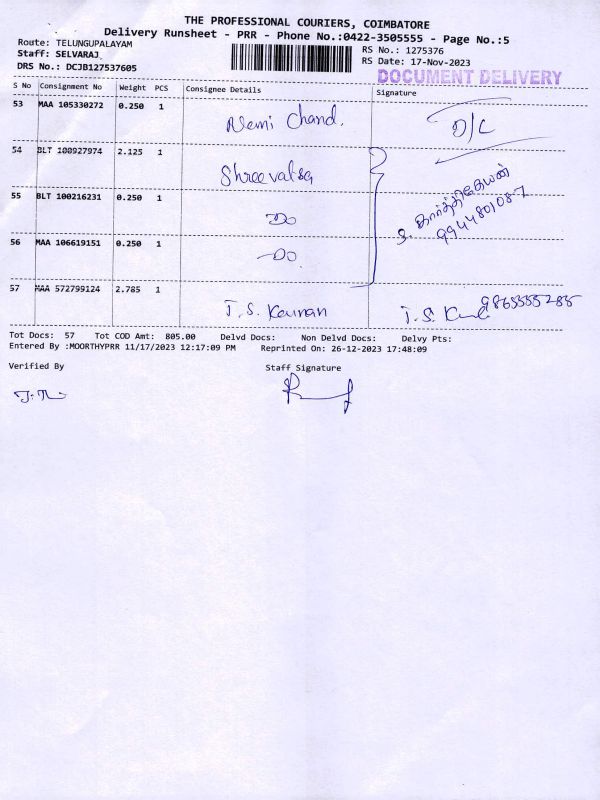 THE PROFESSIONAL COURIERS, COIMBATORE
Delivery Runsheet - PRR - Phone No.:0422-3505555 - Page No.:5
Route: TELUNGUPALAYAM
Staff: SELVARAJ
DRS No.: DCJB127537605
RS No.: 1275376
RS Date: 17-Nov-2023
DOCUMENT DELIVERY
S No Consignment No Weight PCS Consignee Details Signature
53 MAA 105330272 0.250 1 Nemi Chand. D/C
54 BLT 100927974 2.125 1 Shreevatsa
55 BLT 100216231 0.250 1 Do
56 MAA 106619151 0.250 1 -Do
கார்த்திகேயன்
9944801087
57 MAA 572799124 2.785 1 T.S. Kannan T.S. 9865555285
Tot Docs: 57 Tot COD Amt: 805.00 Delvd Docs: Non Delvd Docs: Delvy Pts:
Entered By :MOORTHYPRR 11/17/2023 12:17:09 PM Reprinted On: 26-12-2023 17:48:09
Verified By Staff Signature